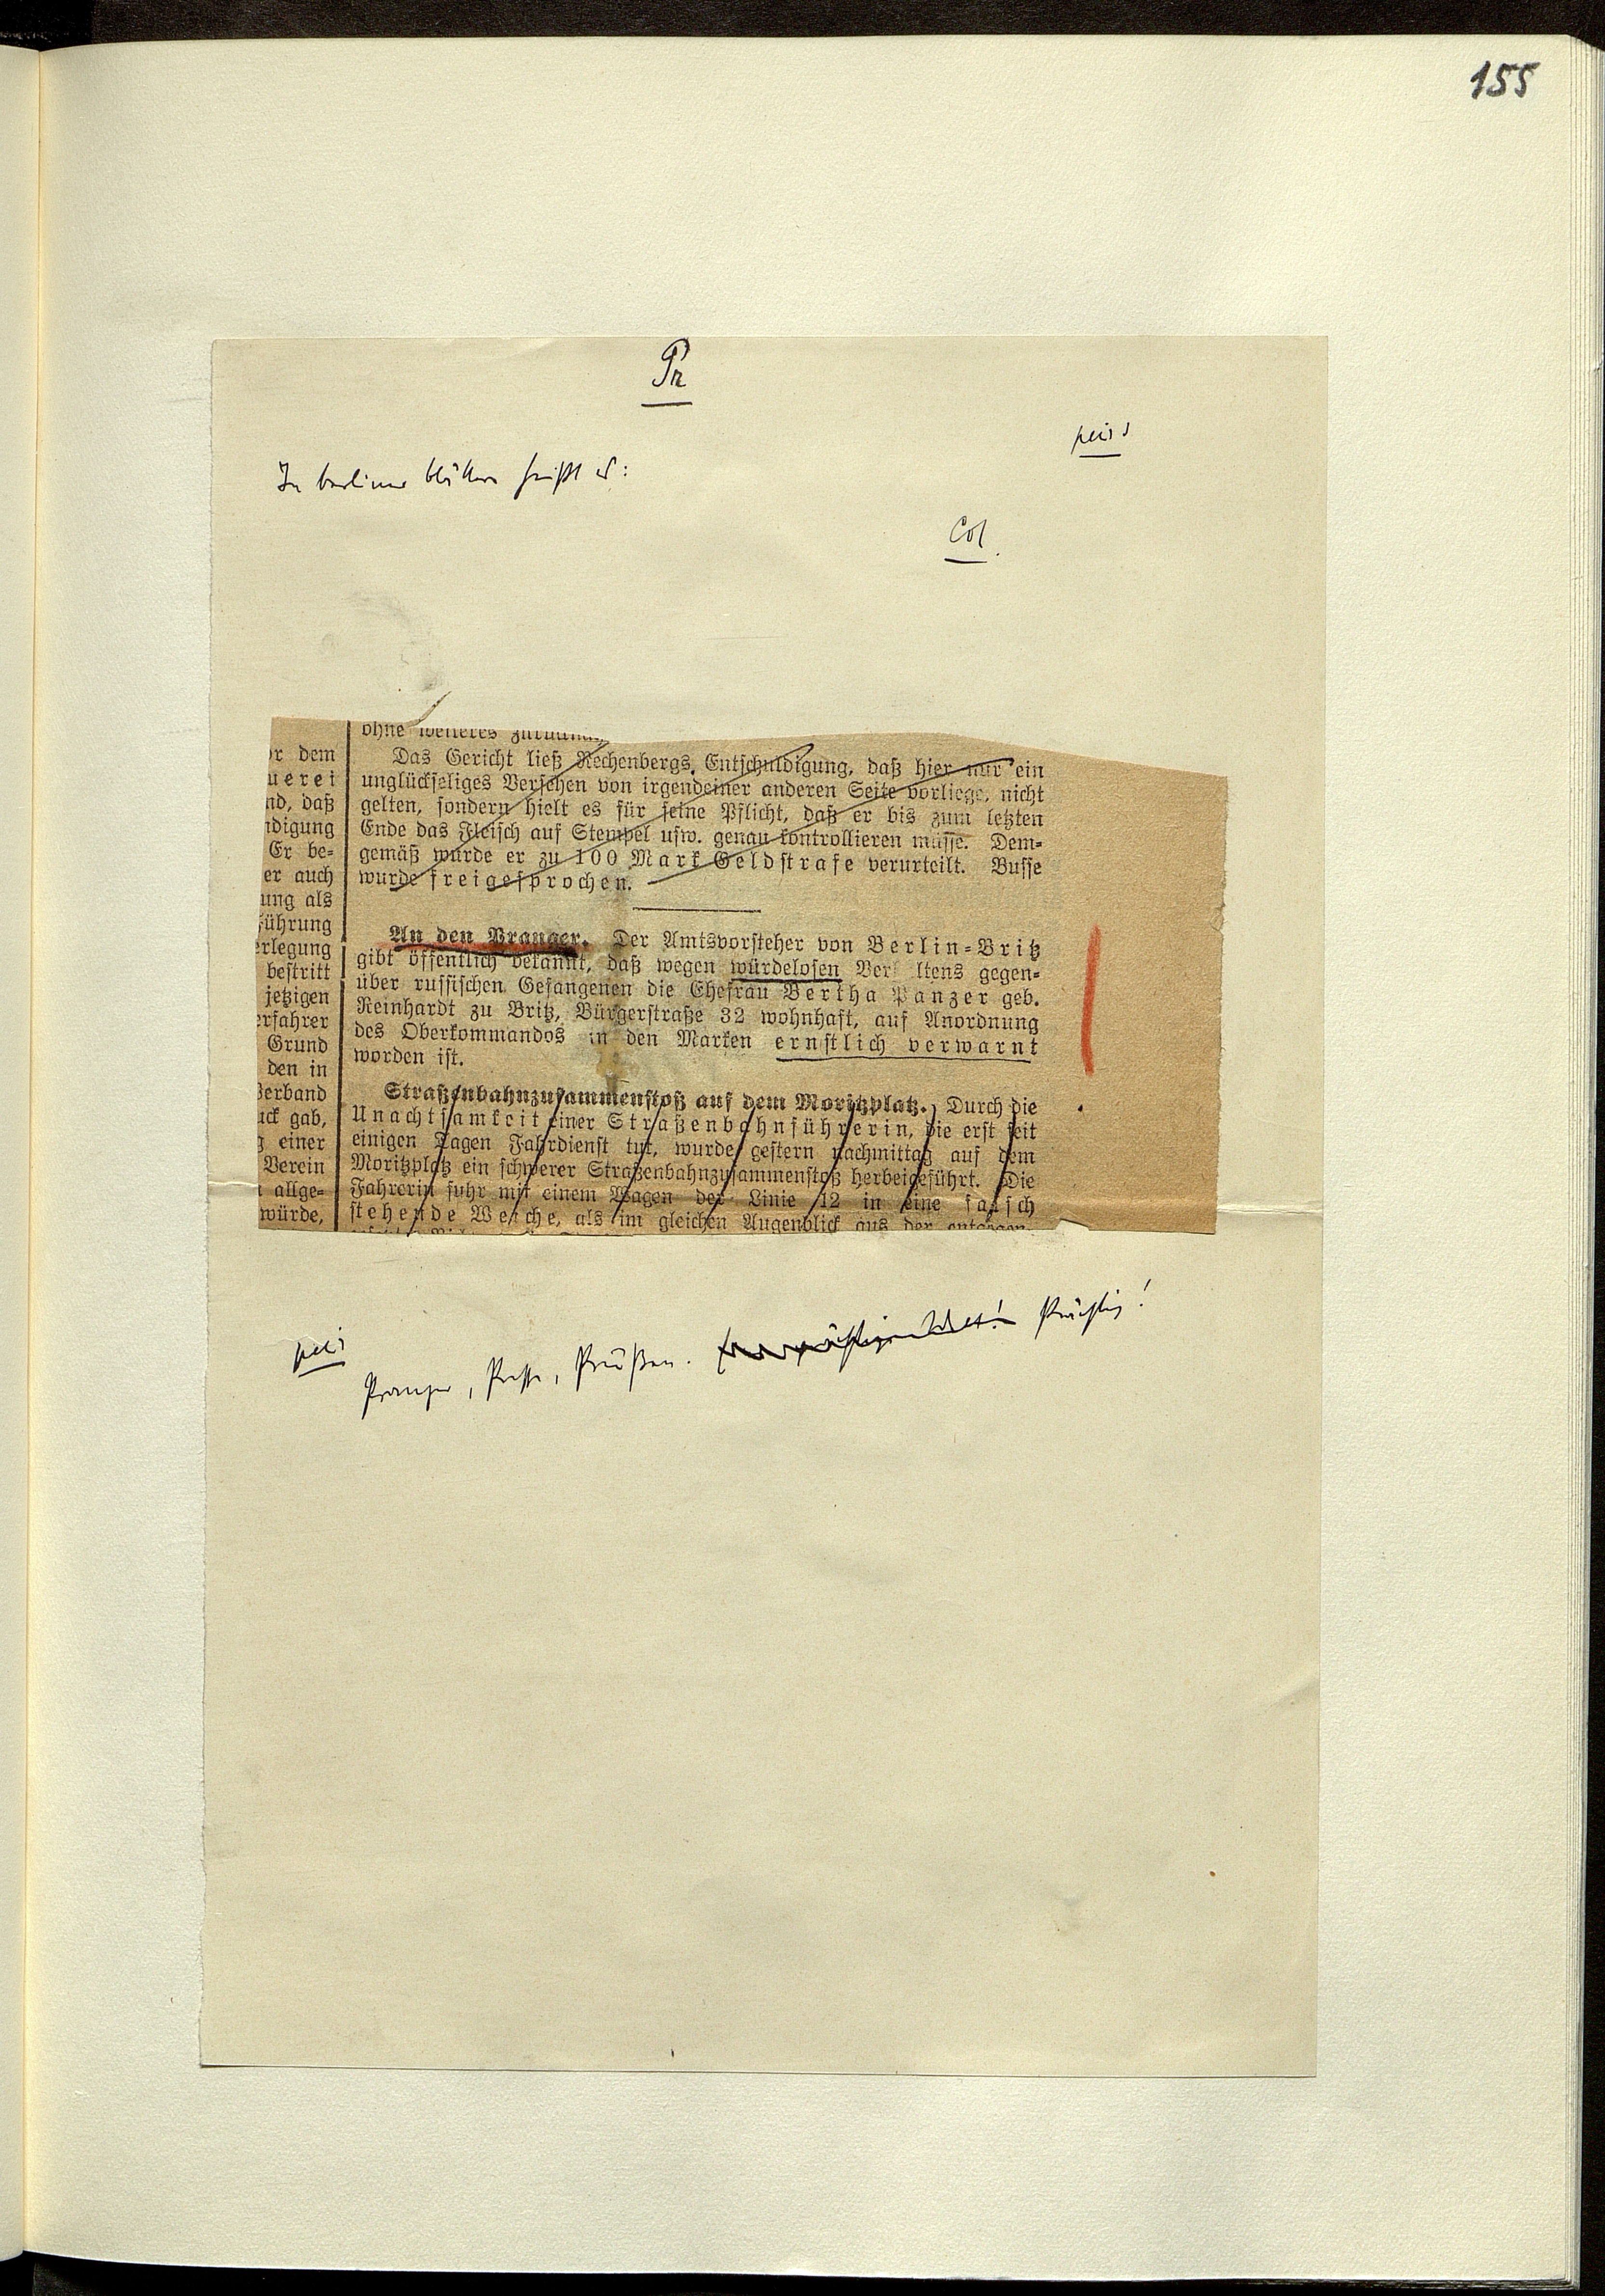 155
Pr
petit
In berliner Blättern heißt es:
Col.
ohne weiteres
Das Gericht ließ Rechenbergs Entschuldigung, daß hier nur ein
unglückseliges Versehen von irgendeiner anderen Seite vorliege, nicht
gelten, sondern hielt es für seine Pflicht, daß er bis zum letzten
Ende das Fleisch auf Stempel usw. genau kontrollieren müsse. Dem-
gemäß wurde er zu 100 Mark Geldstrafe verurteilt. Busse
wurde freigesprochen.
An den Pranger. Der Amtsvorsteher von Berlin-Britz
gibt öffentlich bekannt, daß wegen würdelosen Ver ltens gegen-
über russischen Gefangenen die Ehefrau Bertha Panzer geb.
Reinhardt zu Britz, Bürgerstraße 32 wohnhaft, auf Anordnung
des Oberkommandos in den Marken ernstlich verwarnt
worden ist.
Straßenbahnzusammenstoß auf dem Moritzplatz. Durch die
Unachtsamkeit einer Straßenbahnführerin, die erst seit
einigen Tagen Fahrdienst tut, wurde gestern nachmittag auf dem
Moritzplatz ein schwerer Straßenbahnzusammenstoß herbeigeführt. Die
Fahrerin fuhr mit einem Wagen der Linie 12 in eine falsch
stehende Weiche, als im gleichen Augenblick aus der entgegen-
r dem
uerei
nd, daß
ndigung
Er be-
er auch
ung als
führung
erlegung
bestritt
jetzigen
erfahrer
Grund
den in
Verband
uck gab,
g einer
Verein
allge-
würde,
petit
Pranger, Presse, Preußen. Prächtig!